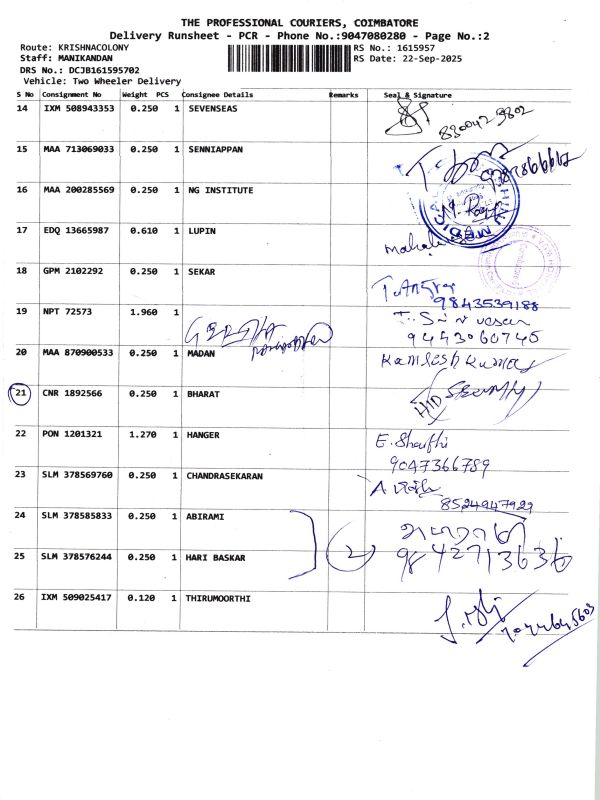 THE PROFESSIONAL COURIERS, COIMBATORE
Delivery Runsheet - PCR - Phone No.:9047080280 - Page No.:2
Route: KRISHNACOLONY RS No.: 1615957
Staff: MANIKANDAN RS Date: 22-Sep-2025
DRS No.: DCJB161595702
Vehicle: Two Wheeler Delivery
S No Consignment No Weight PCS Consignee Details Remarks Seal & Signature
14 IXM 508943353 0.250 1 SEVENSEAS
15 MAA 713069033 0.250 1 SENNIAPPAN
16 MAA 200285569 0.250 1 NG INSTITUTE
MEDICAL
17 EDQ 13665987 0.610 1 LUPIN
18 GPM 2102292 0.250 1 SEKAR
9843539188
19 NPT 72573 1.960 1
9443060745
20 MAA 870900533 0.250 1 MADAN Kamlesh Kumar
21 CNR 1892566 0.250 1 BHARAT
22 PON 1201321 1.270 1 HANGER E. Shanthi
9047366789
23 SLM 378569760 0.250 1 CHANDRASEKARAN
8524947929
24 SLM 378585833 0.250 1 ABIRAMI
25 SLM 378576244 0.250 1 HARI BASKAR 2 9842713636
26 IXM 509025417 0.120 1 THIRUMOORTHI